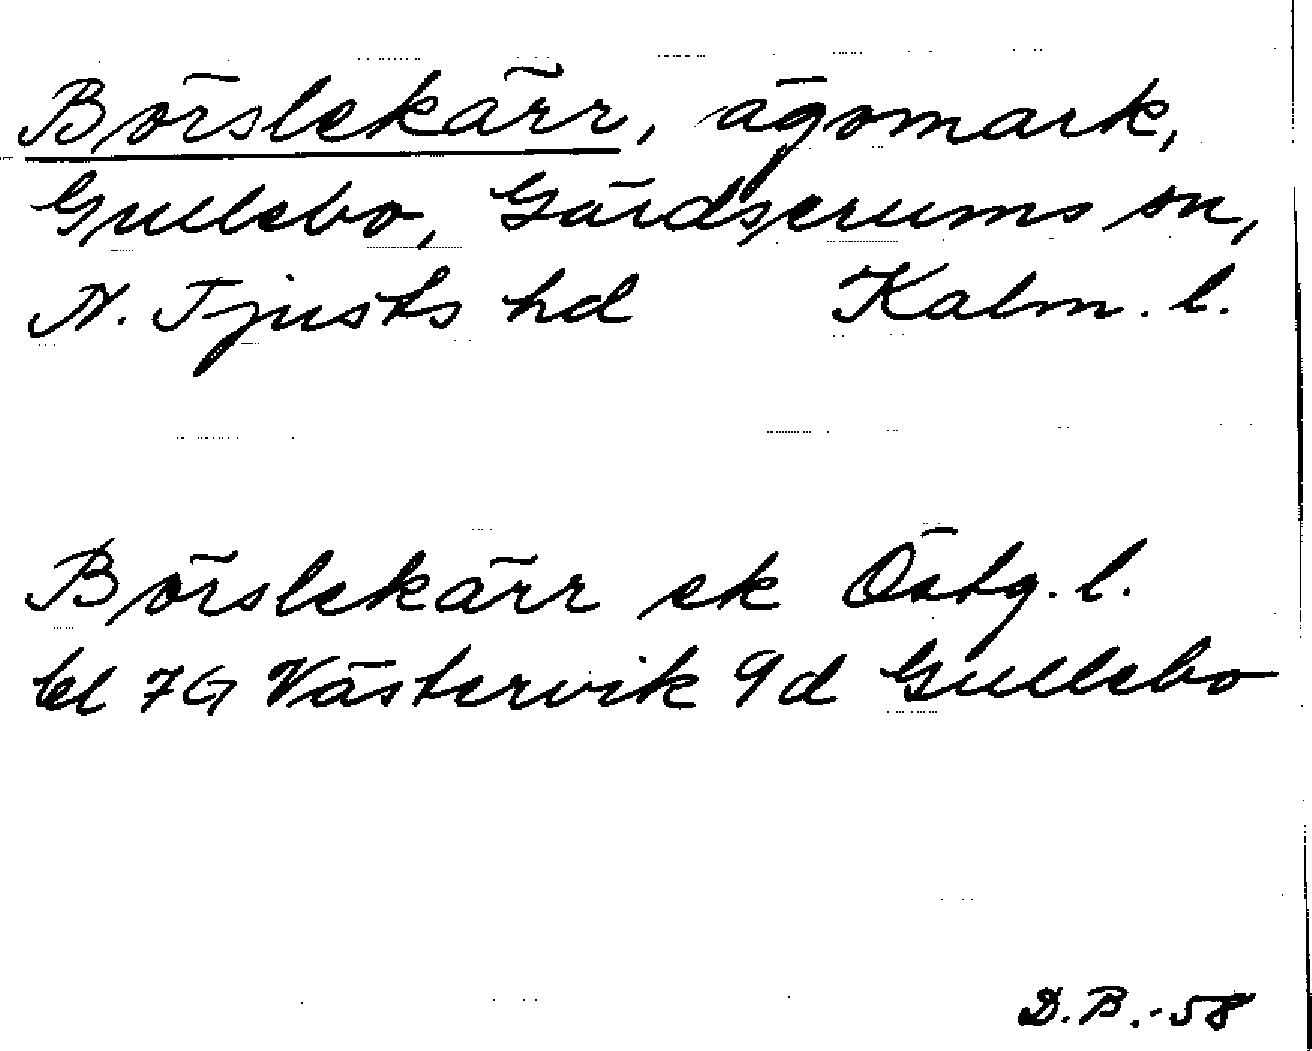 Börslekärr, ägomark,
Gullebo, Gärdserums sn,
N. Tjusts hd Kalm. l.
Börslekärr ek Östg. l.
bl 7G Västervik 9d Gullebo
D. B. -58